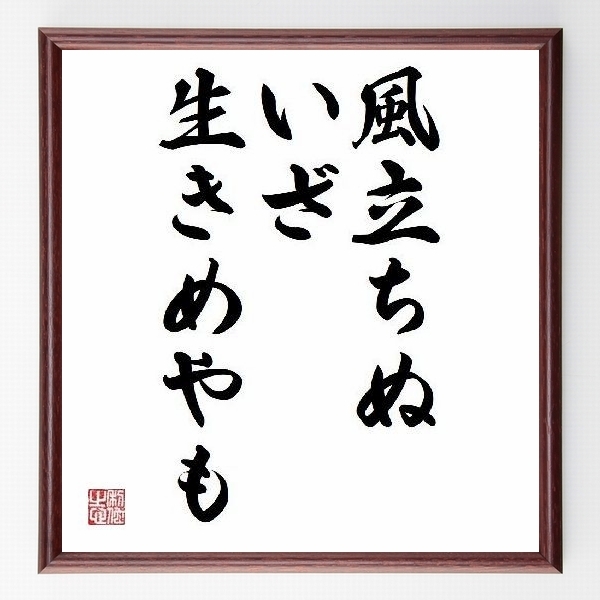 風立ちぬ
いざ
生きめやも